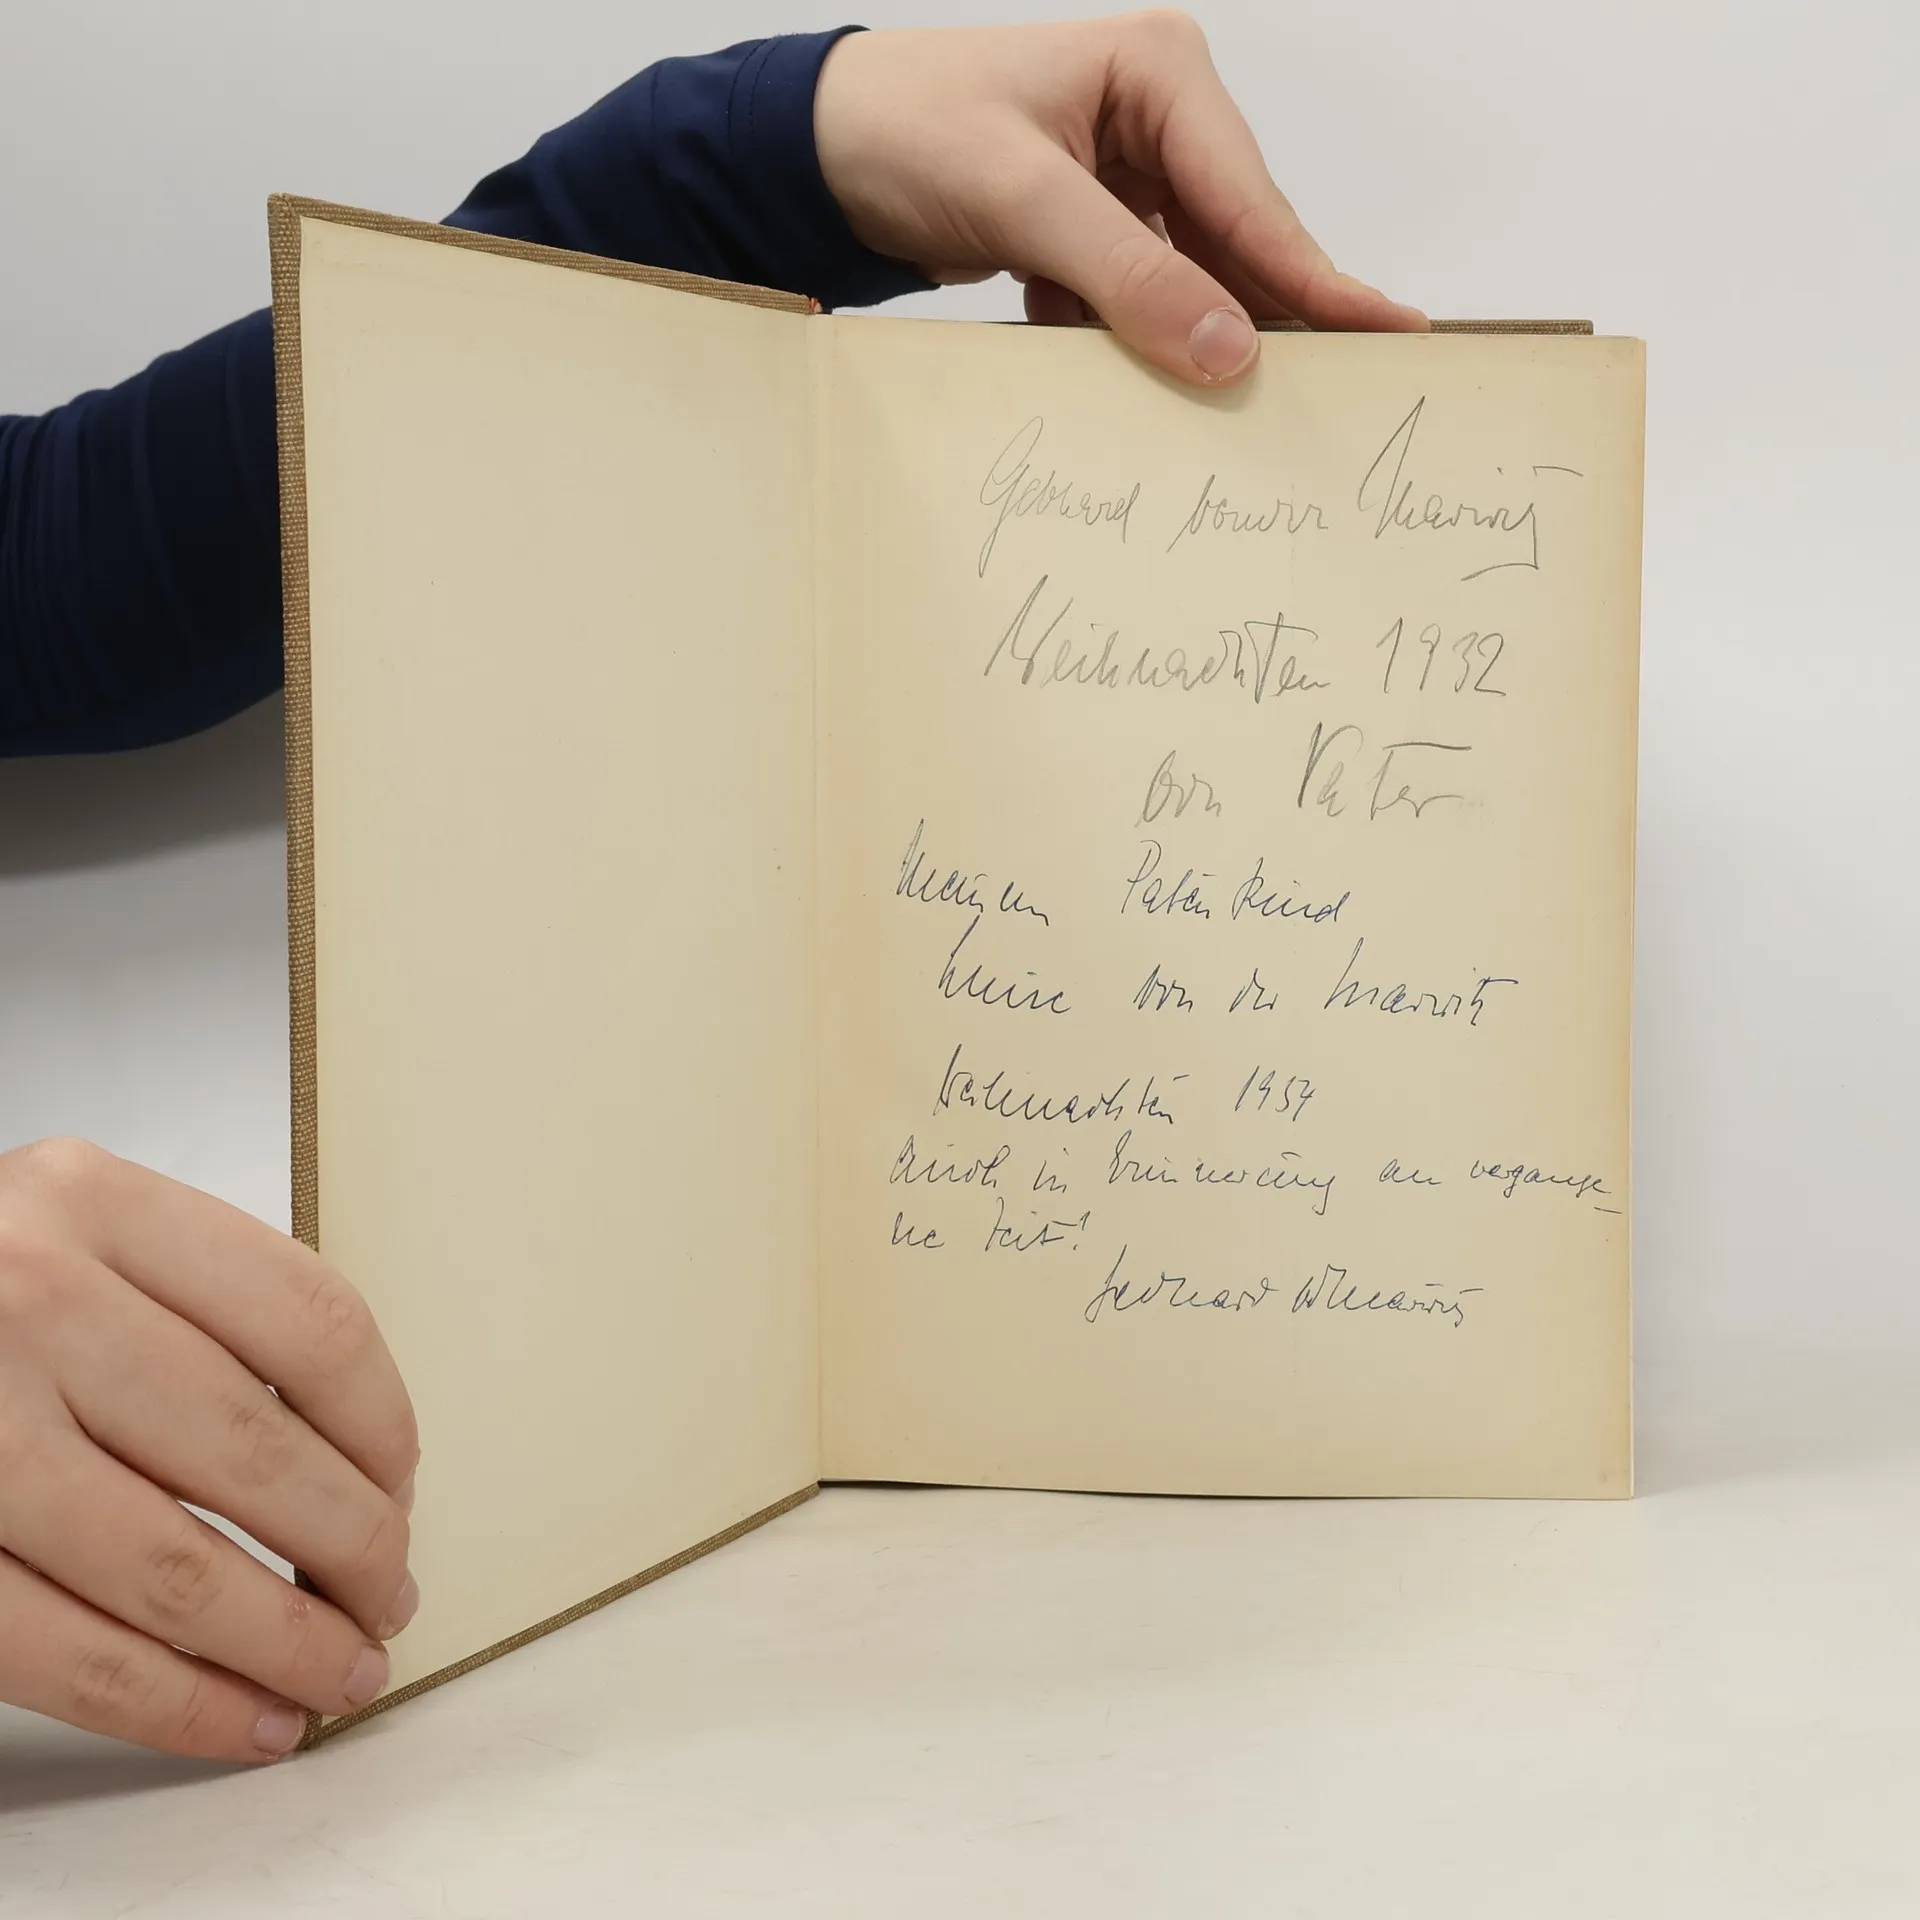 Gebhard von der Marwitz
Weihnachten 1932
von Vater
Meinem Patenkind
Luise von der Marwitz
Weihnachten 1954
Auch in Erinnerung an vergange-
ne Zeit!
Gebhard vdMarwitz